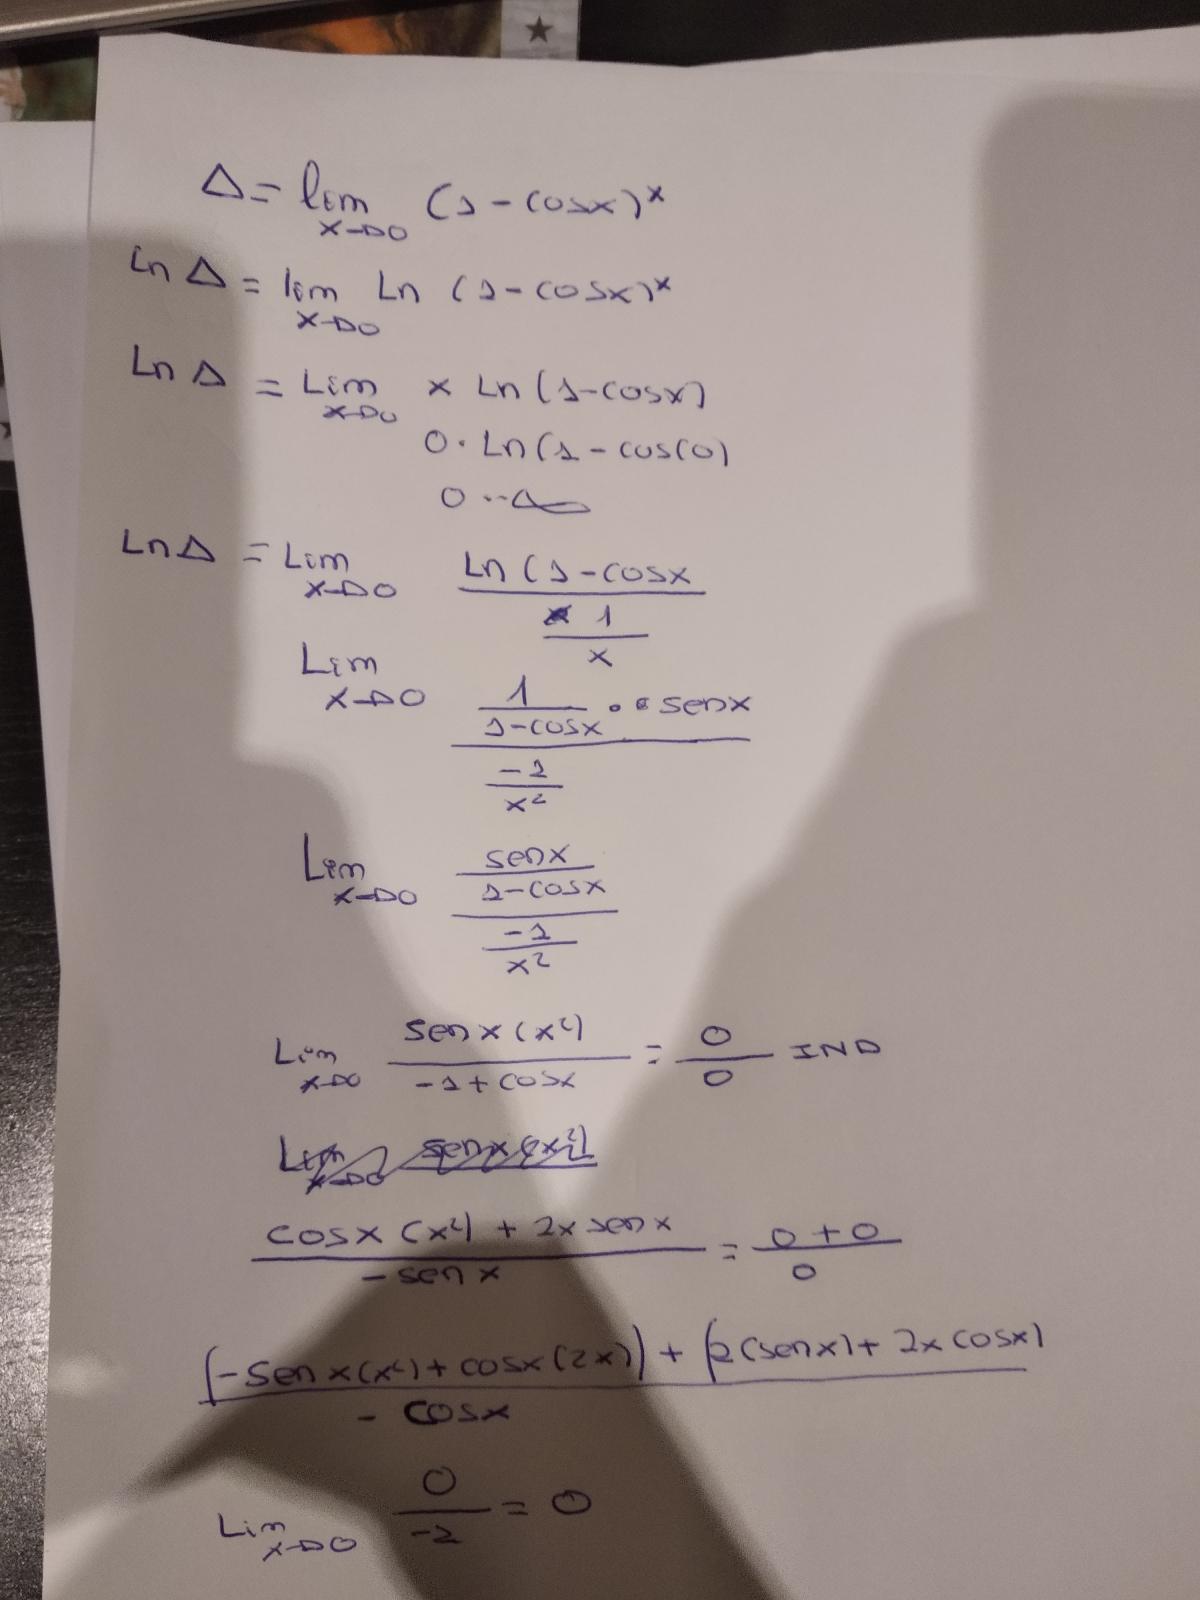 Δ = lim x→0 (1 - cosx)^x
Ln Δ = lim x→0 Ln (1 - cosx)^x
Ln Δ = Lim x→0 x Ln (1-cosx)
0 · Ln (1 - cos(0)
0 · -∞
Ln Δ = Lim x→0 Ln (1-cosx / 1/x
Lim x→0 1/1-cosx · senx / -1/x²
Lim x→0 senx/1-cosx / -1/x²
Lim x→0 senx (x²) / -1+cosx = 0/0 IND
Lim x→0 senx (x²)
cosx (x²) + 2x senx / -senx = 0+0/0
(-senx(x²) + cosx(2x)) + (2(senx) + 2x cosx) / -cosx
Lim x→0 0/-1 = 0